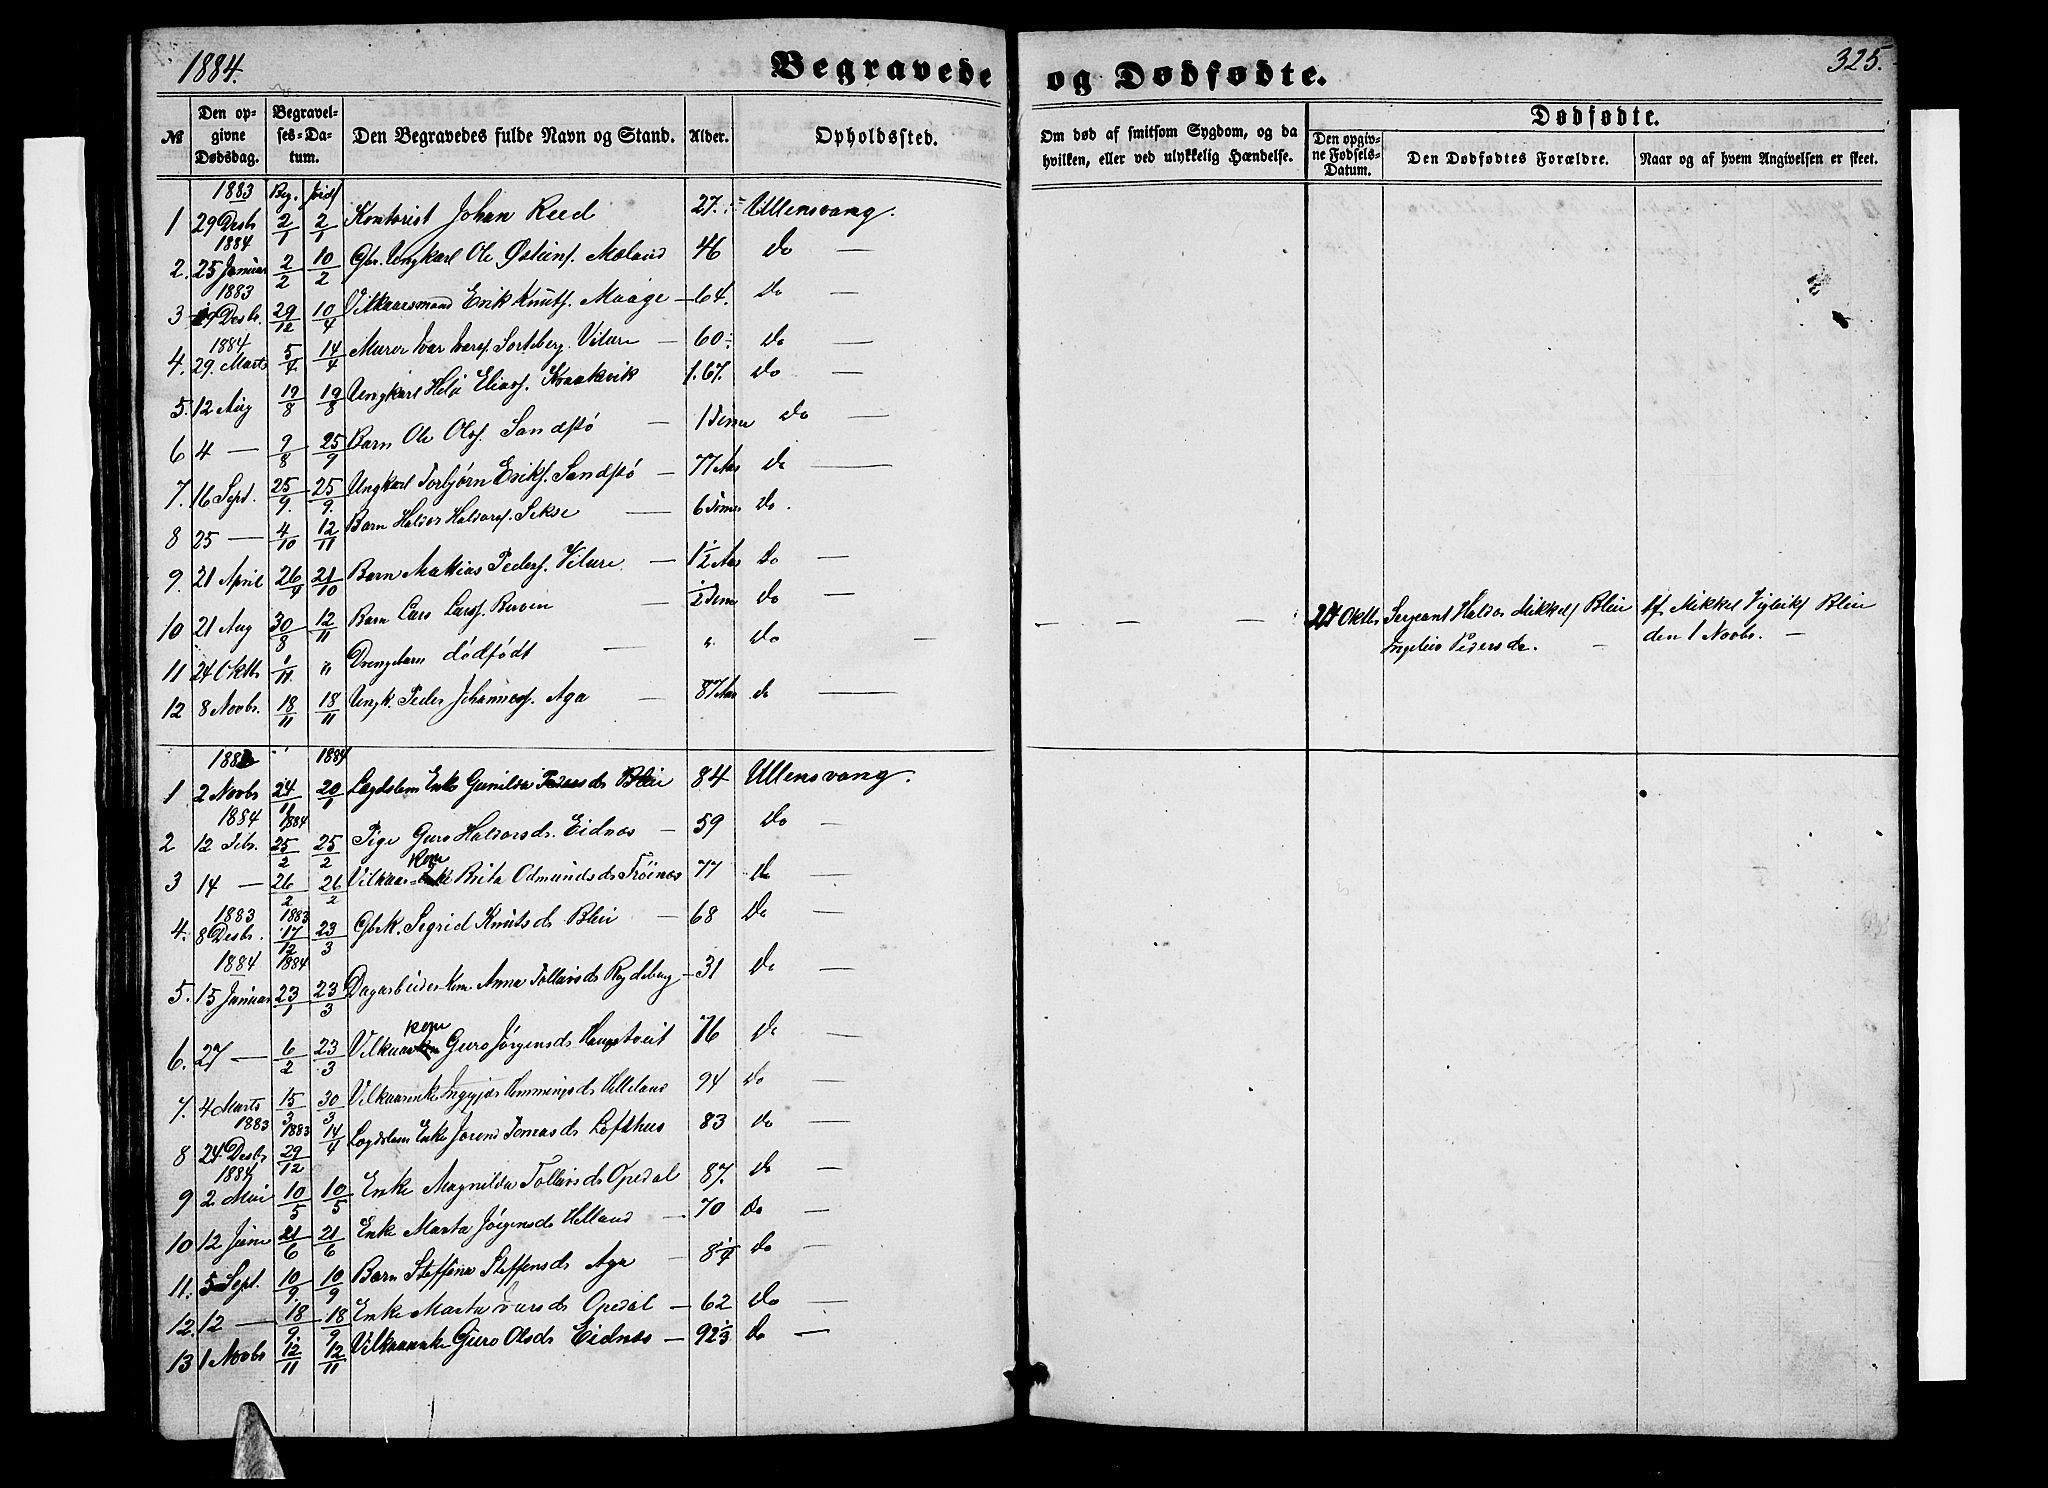 1884.
Begravede og Dødfødte.
325.
№
Den opgivne Dødsdag.
Begravelses-Datum.
Den Begravedes fulde Navn og Stand.
Alder.
Opholdssted.
Om død af smitsom Sygdom, og da hvilken, eller ved ulykkelig Hændelse.
Dødfødte.
Den opgivne Fødsels-Datum.
Den Dødfødtes Forældre.
Naar og af hvem Angivelsen er skeet.
1883 Beg. Jord
1 29 Desbr 2/1 2/1 Kontorist Johan Reed 27. Ullensvang.
1884
2. 25 Januar 2/2 10/2 Gbr. Ungkarl Ole Østeins. Mæland 46 Do —
1883
3 Desbr. 29/12 10/4 Vilkaarsmand Erik Knuts. Maage — 64. Do —
1884
4. 29. Marts 5/4 14/4 Murer Ivar Ivars. Sorteberg. Vilure — 60 Do —
5. 12 Aug 19/8 19/8 Ungkarl Helje Elias. Kraakevik 67. Do —
6 4 — 9/8 25/9 Barn Ole Ols. Sandstø — 1 Time Do —
7. 16 Sept. 25/9. 25/9. Ungkarl Torbjørn Eriks. Sandstø — 77 Aar Do —
8 25 — 4/10 12/11 Barn Haldor Haldors. Sekse — 6 Timer Do.
9. 21 April 26/4 21/10 Barn Mathias Peders. Vilure. — 1 1/2 Aar Do —
10 21 Aug 30/8 12/11 Barn Lars Lars. Berven — 1/2 Time Do —
11 24 Oktbr 1/11 " Drengebarn dødfødt — " Do — — — — 24 Oktbr Sergeant Haldor Mikkels Bleie Af Mikkel Vigleiks Bleie
Ingeleiv Pedersdr. — den 1 Novbr. —
12 8 Novbr. 18/11 18/11 Ungk. Peder Johannes. Aga — 87 Aar do —
1884
1 2 Novbr 24/11 20/1 Lægdslem Enke Gunilda Pedersdr Bleie 84 Ullensvang.
1884 1884
2 12 Febr. 25/2 25/2 Pige Guro Haldorsdr. Eidnes — 59 Do —
Kone
3 14 — 26/2 26/2 Vilkaar- Brita Odmundsdr Trøines 77 Do —
1883 1883
4. 8 Desbr. 17/12 23/3 Gbrk. Segrid Knutsdr Bleie — 68 Do —
1884 1884
5. 15 Januar 23/1 23/3 Dagarbeider-kon. Anna Tollavsdr Rydeberg — 31 Do —
Kone
6. 27 — 6/2 23/3 Vilkaar Guro Jørgensdr Haugstveit 76 Do —
7. 4 Marts 15/3 30/3 Vilkaarenke Hemmingsdr Helleland 94 Do —
1883 1883
8 24 Desbr 29/12 14/4 Lægdslem Enke Jorend Tomasdr Lofthus 83 Do —
1884
9 2 Mai 10/5 10/5 Enke Magnilda Tollavsdr Opedal 87. Do —
10 12 Juni 21/6 21/6 Enke Marta Jørgensdr Helland — 70 Do —
11. 5 Sept. 10/9 10/9 Barn Steffina Steffensdr Aga — Do —
12. 12 — 18/9. 18/9 Enke Marta Ivarsdr Opedal — 62 Do —
13 1 Novbr 12/11 12/11 Vilkaarenke Guro Olsdr Eidnes — 92 1/3 Do —